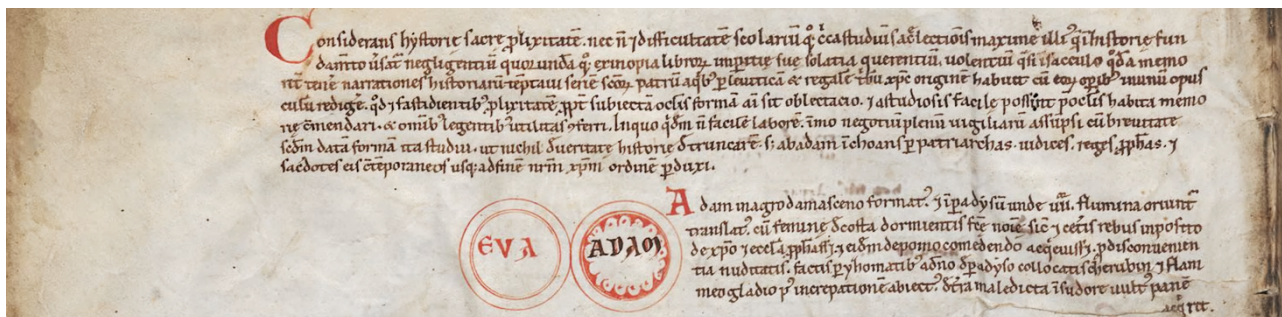 Considerans hystorie sacre ꝓlixitatē. nec ñ ⁊ difficultatē scolariū qͦꝝ c̄ca studiū sac̄e lectiōis maxime illiꝰ q̄ ī historie fun
dam̄to ūsat᷑ negligentiū quoꝝūndā qͦꝝ ex inopia libroꝝ imꝑitie sue solatia querentiū. volentiū qͣsi ī sacculo qͦdā memo
rit᷑ tenēe narrationes historiarū. tēptaui seriē sc̄oꝝ patrū a qͥbꝰ ꝑ leuiticā & regalē tͥbū xp̄c originē habuit cū eoꝝ oꝑibꝰ in unū opus
culū redigēe. qͦd ⁊ fastidientibꝰ ꝓlixitatē ꝓpt᷑ subiectā oclis formā aī sit oblectacio. ⁊ a studiosis facile possint p̄ oclis habita memo
rie c̄mendari. & om̄ibꝰ legentibꝰ utilitas ꝯferri. In quo qͥdē ñ facilē laborē. īmo negotiū plenū uigiliarū assūpsi cū breuitate
scd̄m datā formā ita studui. ut nichil d̄ ueritate historie d̄truncarē. s; ab adam īchoans ꝑ patriarchas. iudices. reges. ꝓphās. ⁊
sac̄dotes eis c̄tēporaneos usqꝫ ad finē nr̄m xp̄m ordinē ꝑduxi.
EVA
ADAM
Adam in agro damasceno format᷑. ⁊ ī ꝑadysū unde .iiii. flumina oriunt᷑
translatꝰ. cū femine d̄ costa dormientis fc̄e noīē. sic̄ ⁊ cet̄is rebus inposito
de xp̄o ⁊ ecc̄la ꝓphāss; ⁊ eidē de pomo comedendo acq̄euiss;. ꝑ disconuenien
tia nuditatis. factis ꝑizhomatibꝰ a dn̄o d̄ ꝑadyso collocatis cherubin ⁊ flam
meo gladio pꝰ increpationē abiectꝰ. d̄ t͛ra maledicta ī sudore uult᷑ panē
acq̄ret.